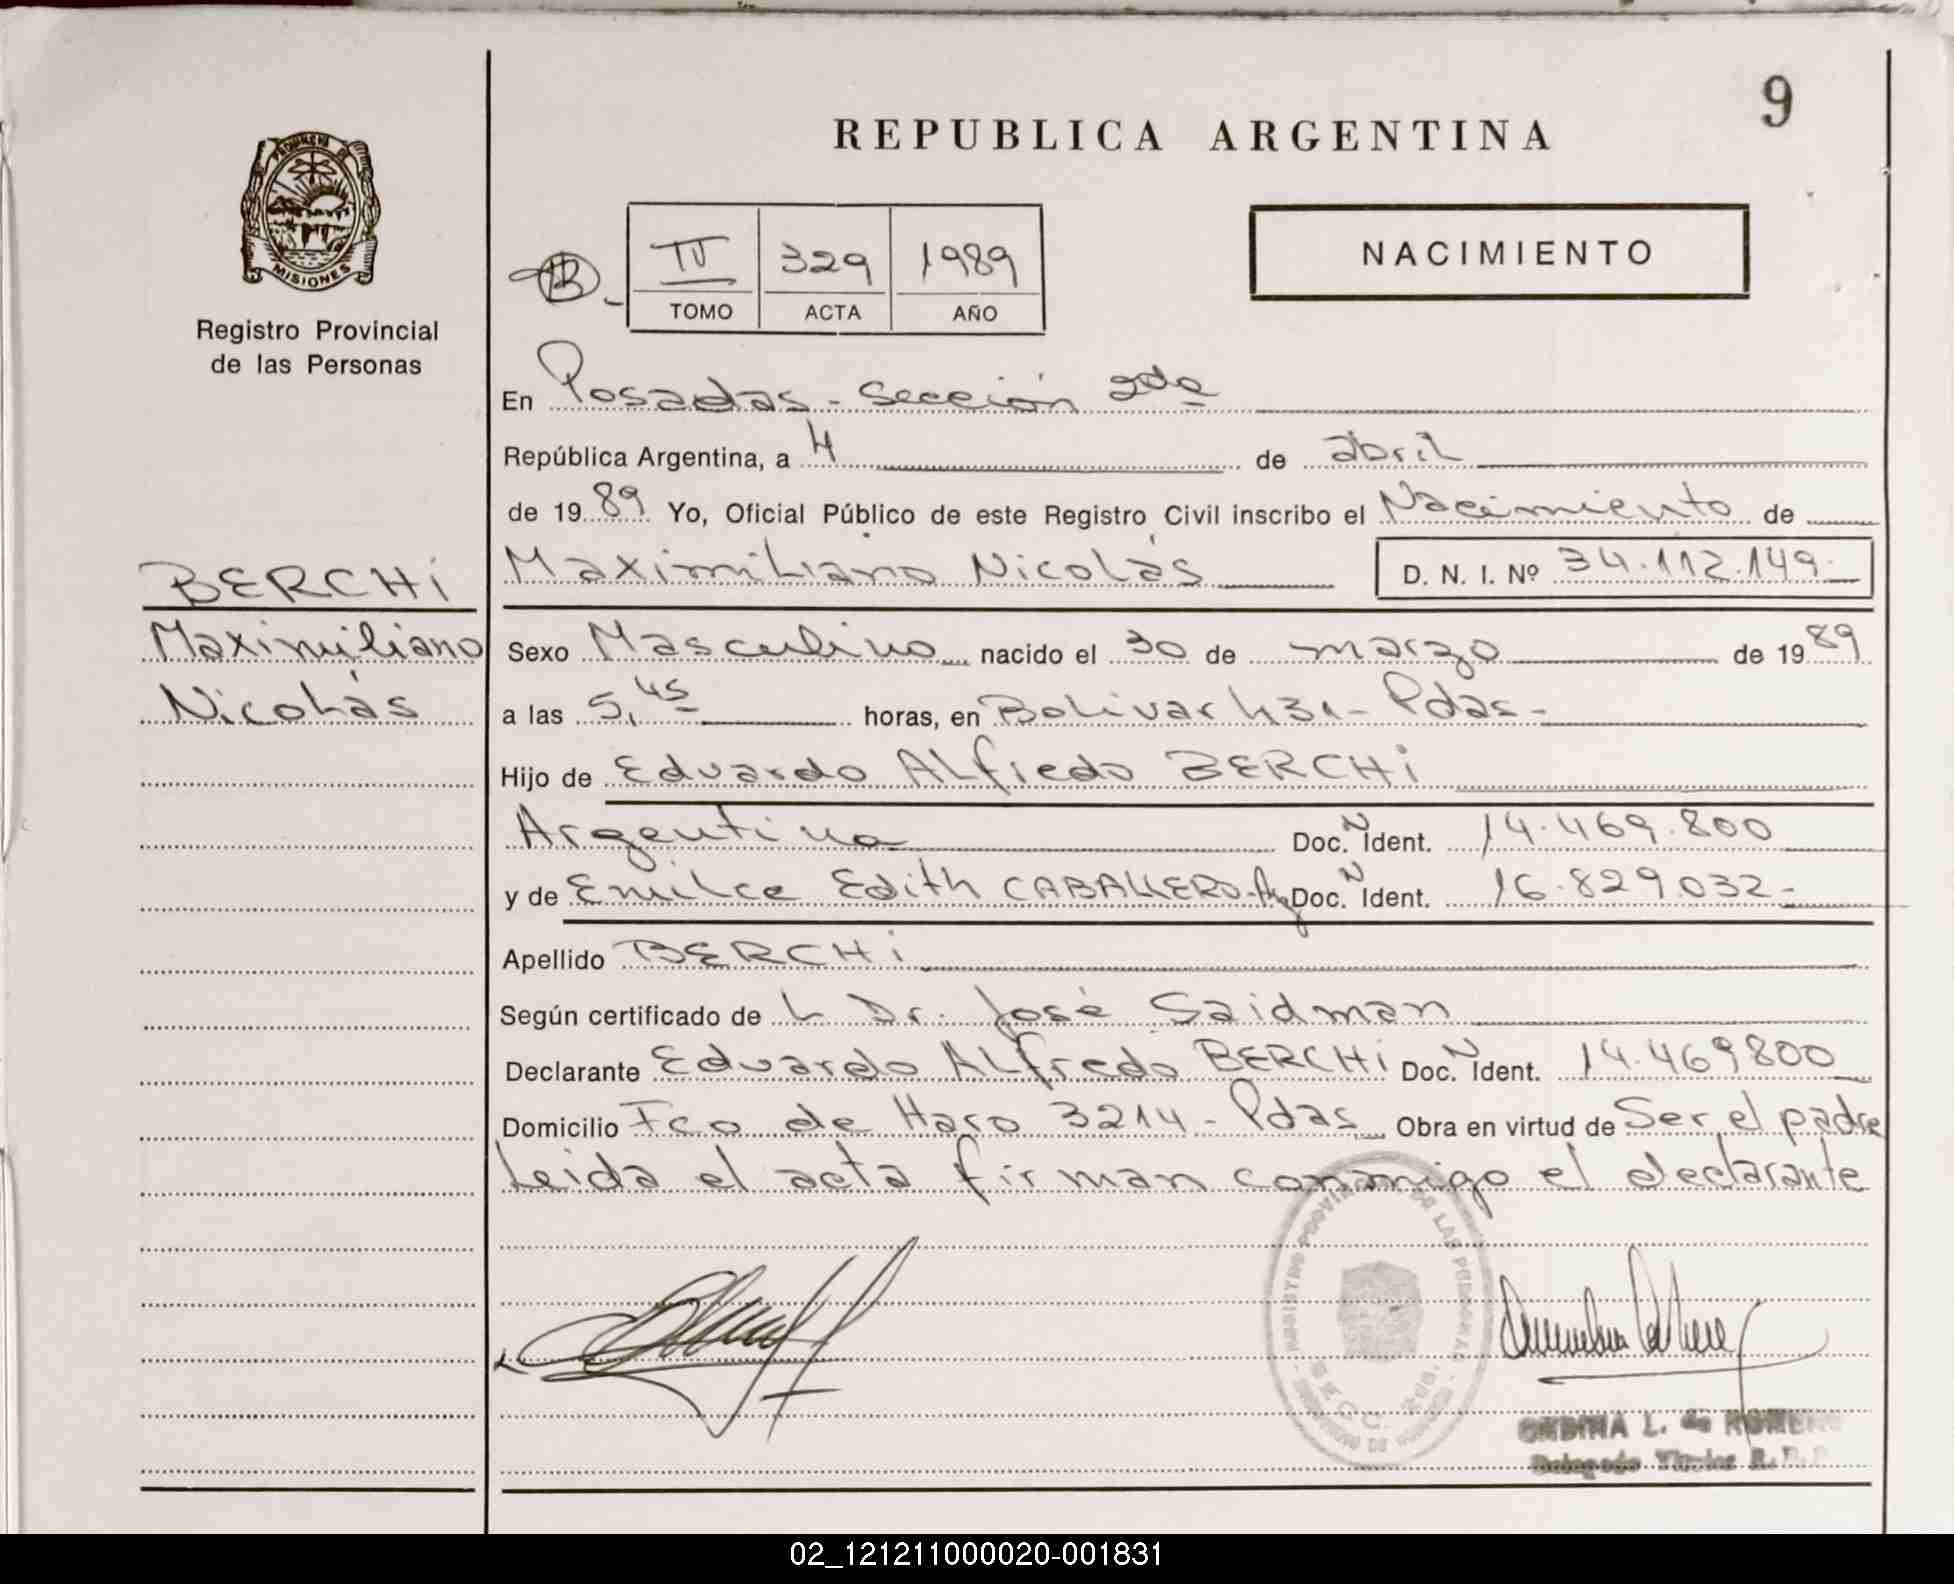 9
REPUBLICA ARGENTINA
PROVINCIA DE
MISIONES
Registro Provincial
de las Personas
NACIMIENTO
B - IV 329 1989
TOMO ACTA AÑO
En Posadas - Sección 2da
República Argentina, a 4 de abril
de 1989 Yo, Oficial Público de este Registro Civil inscribo el Nacimiento de
Maximiliano Nicolás D. N. I. Nº 34.112.149.
BERCHi
Maximiliano
Nicolás
Sexo Masculino nacido el 30 de marzo de 1989
a las 5,45 horas, en Bolivar 431 - Pdas -
Hijo de Eduardo ALfredo BERCHi
Argentina Doc. N Ident. 14.469.800
y de Emilce Edith CABALLERO - Ag Doc. N Ident. 16.829.032 -
Apellido BERCHi
Según certificado de L Dr. José Saidman
Declarante Eduardo ALfredo BERCHi Doc. N Ident. 14.469800
Domicilio Fco de Haro 3214 - Pdas Obra en virtud de Ser el padre
Leida el acta firman conmigo el declarante
REGISTRO PROVINCIAL DE LAS PERSONAS
L. de ROMERO
Delegado Titular R.P.P.
02_121211000020-001831